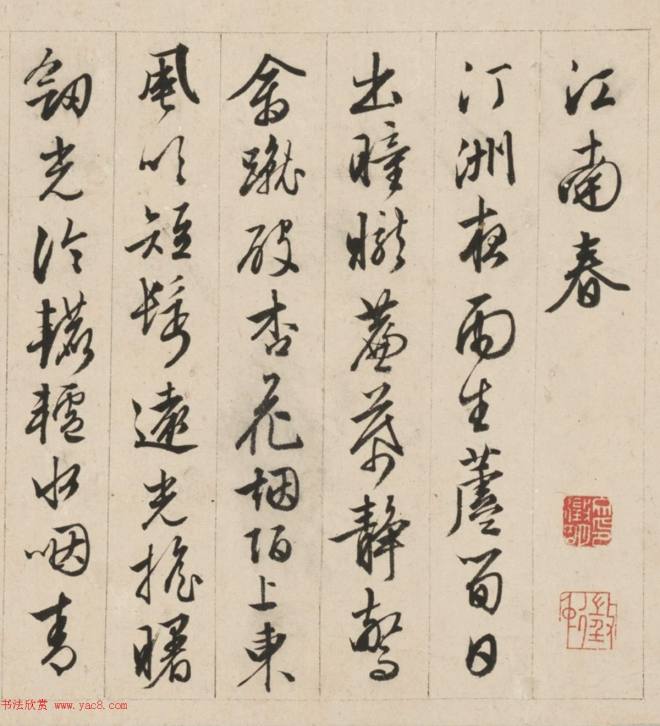 江南春
汀洲夜雨生蘆筍日
出曈曨簾幕静驚
禽蹴破杏花烟陌上東
風吹短鬢遠光摇曙
劒光冷轆轤水咽青
书法欣赏 www.yac8.com